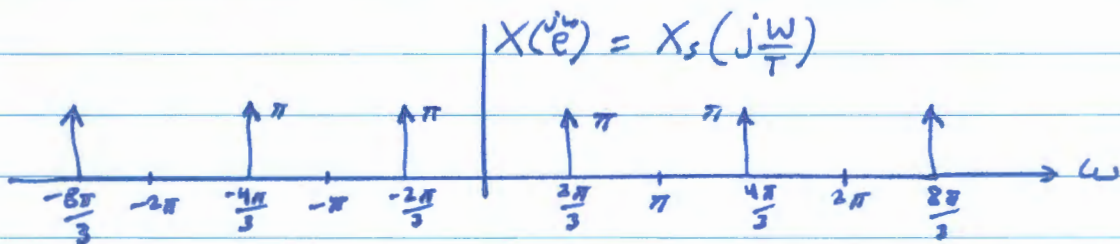 X(e^{jω}) = X_s(j ω/T)
π π π π
-8π/3 -2π -4π/3 -π -2π/3 2π/3 π 4π/3 2π 8π/3 ω